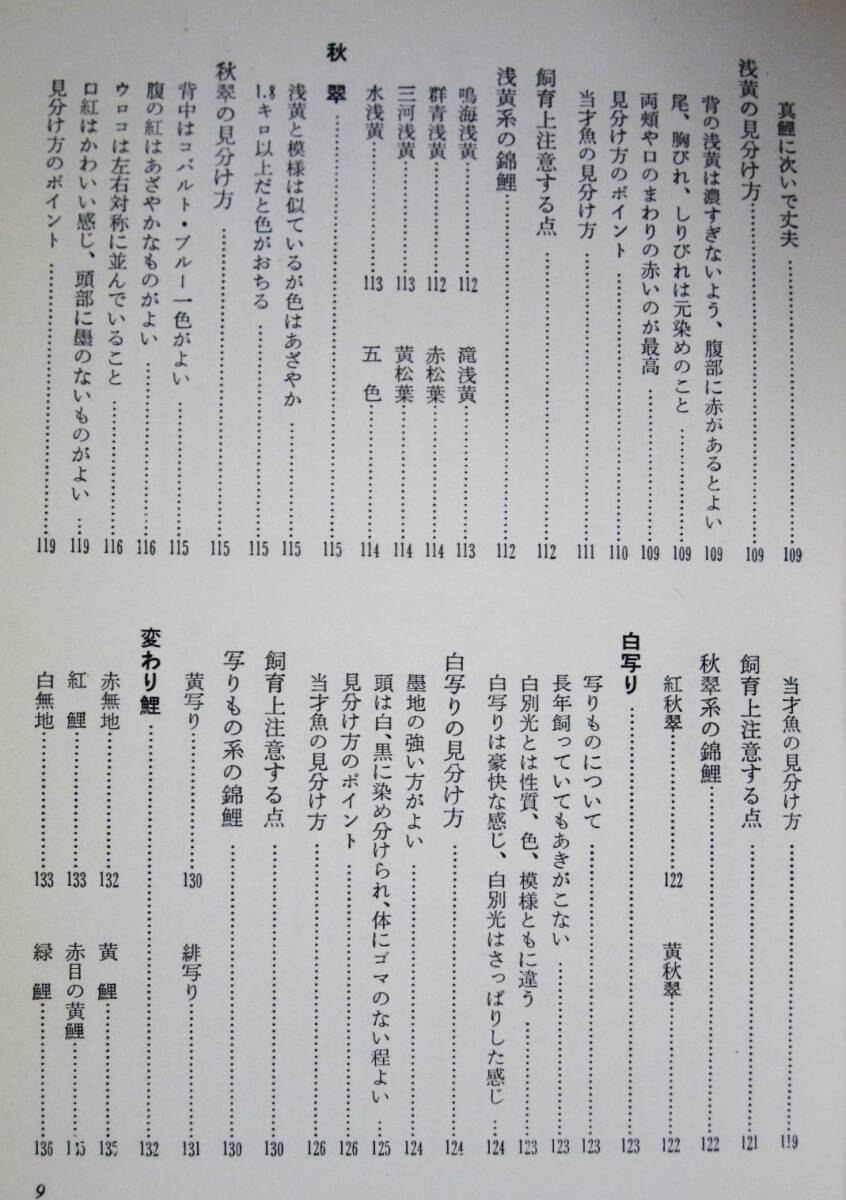 真鯉に次いで丈夫……109
浅黄の見分け方……109
背の浅黄は濃すぎないよう、腹部に赤があるとよい 109
尾、胸びれ、しりびれは元染めのこと……109
両頬や口のまわりの赤いのが最高……109
見分け方のポイント……110
当才魚の見分け方……111
飼育上注意する点……112
浅黄系の錦鯉……112
鳴海浅黄……112 滝浅黄……113
群青浅黄……112 赤松葉……114
三河浅黄……113 黄松葉……114
水浅黄……113 五色……114
秋翠……115
浅黄と模様は似ているが色はあざやか……115
1.8キロ以上だと色がおちる……115
秋翠の見分け方……115
背中はコバルト・ブルー一色がよい……115
腹の紅はあざやかなものがよい……116
ウロコは左右対称に並んでいること……116
口紅はかわいい感じ、頭部に墨のないものがよい…119
見分け方のポイント……119
当才魚の見分け方……119
飼育上注意する点……121
秋翠系の錦鯉……122
紅秋翠……122 黄秋翠……122
白写り……123
写りものについて……123
長年飼っていてもあきがこない……123
白別光とは性質、色、模様ともに違う……123
白写りは豪快な感じ、白別光はさっぱりした感じ…124
白写りの見分け方……124
墨地の強い方がよい……124
頭は白、黒に染め分けられ、体にゴマのない程よい…125
見分け方のポイント……126
当才魚の見分け方……126
飼育上注意する点……130
写りもの系の錦鯉……130
黄写り……130 緋写り……131
変わり鯉……132
赤無地……132 黄鯉……135
紅鯉……133 赤目の黄鯉……
白無地……133 緑鯉……136
9